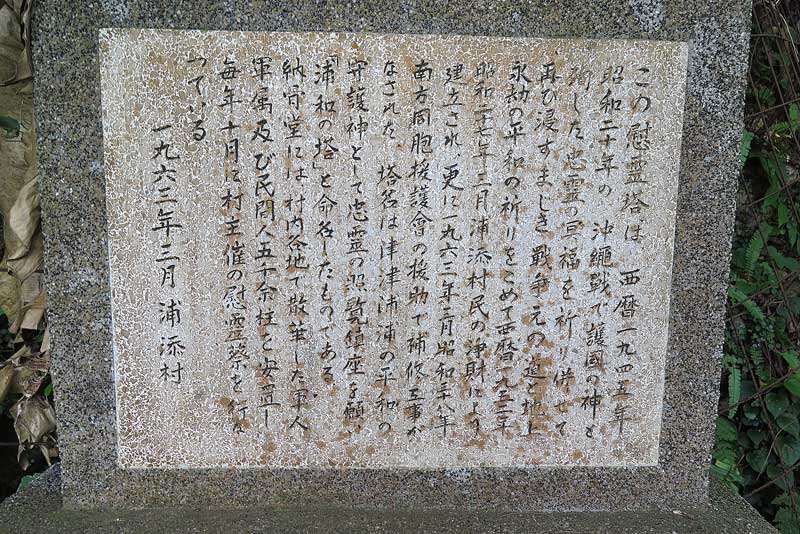 この慰霊塔は 西暦一九四五年
昭和二十年の 沖縄戦で護國の神と
殉した忠霊の冥福を祈り 併せて
再び浸すまじき 戦争えの道と地上
永劫の平和の祈りをこめて西暦一九五二年
昭和二十七年 三月 浦添村民の浄財により
建立され 更に一九六三年二月昭和三十八年
南方同胞援護會の援助で補修工事が
なされた、塔名は津津浦浦の平和の
守護神として忠霊の照覧鎮座を願い
「浦和の塔」と命名したものである、
納骨堂には 村内各地で散華した軍人
軍属及び民間人五千余柱を安置し
毎年十月に村主催の慰霊祭を行な
っている
一九六三年三月 浦添村